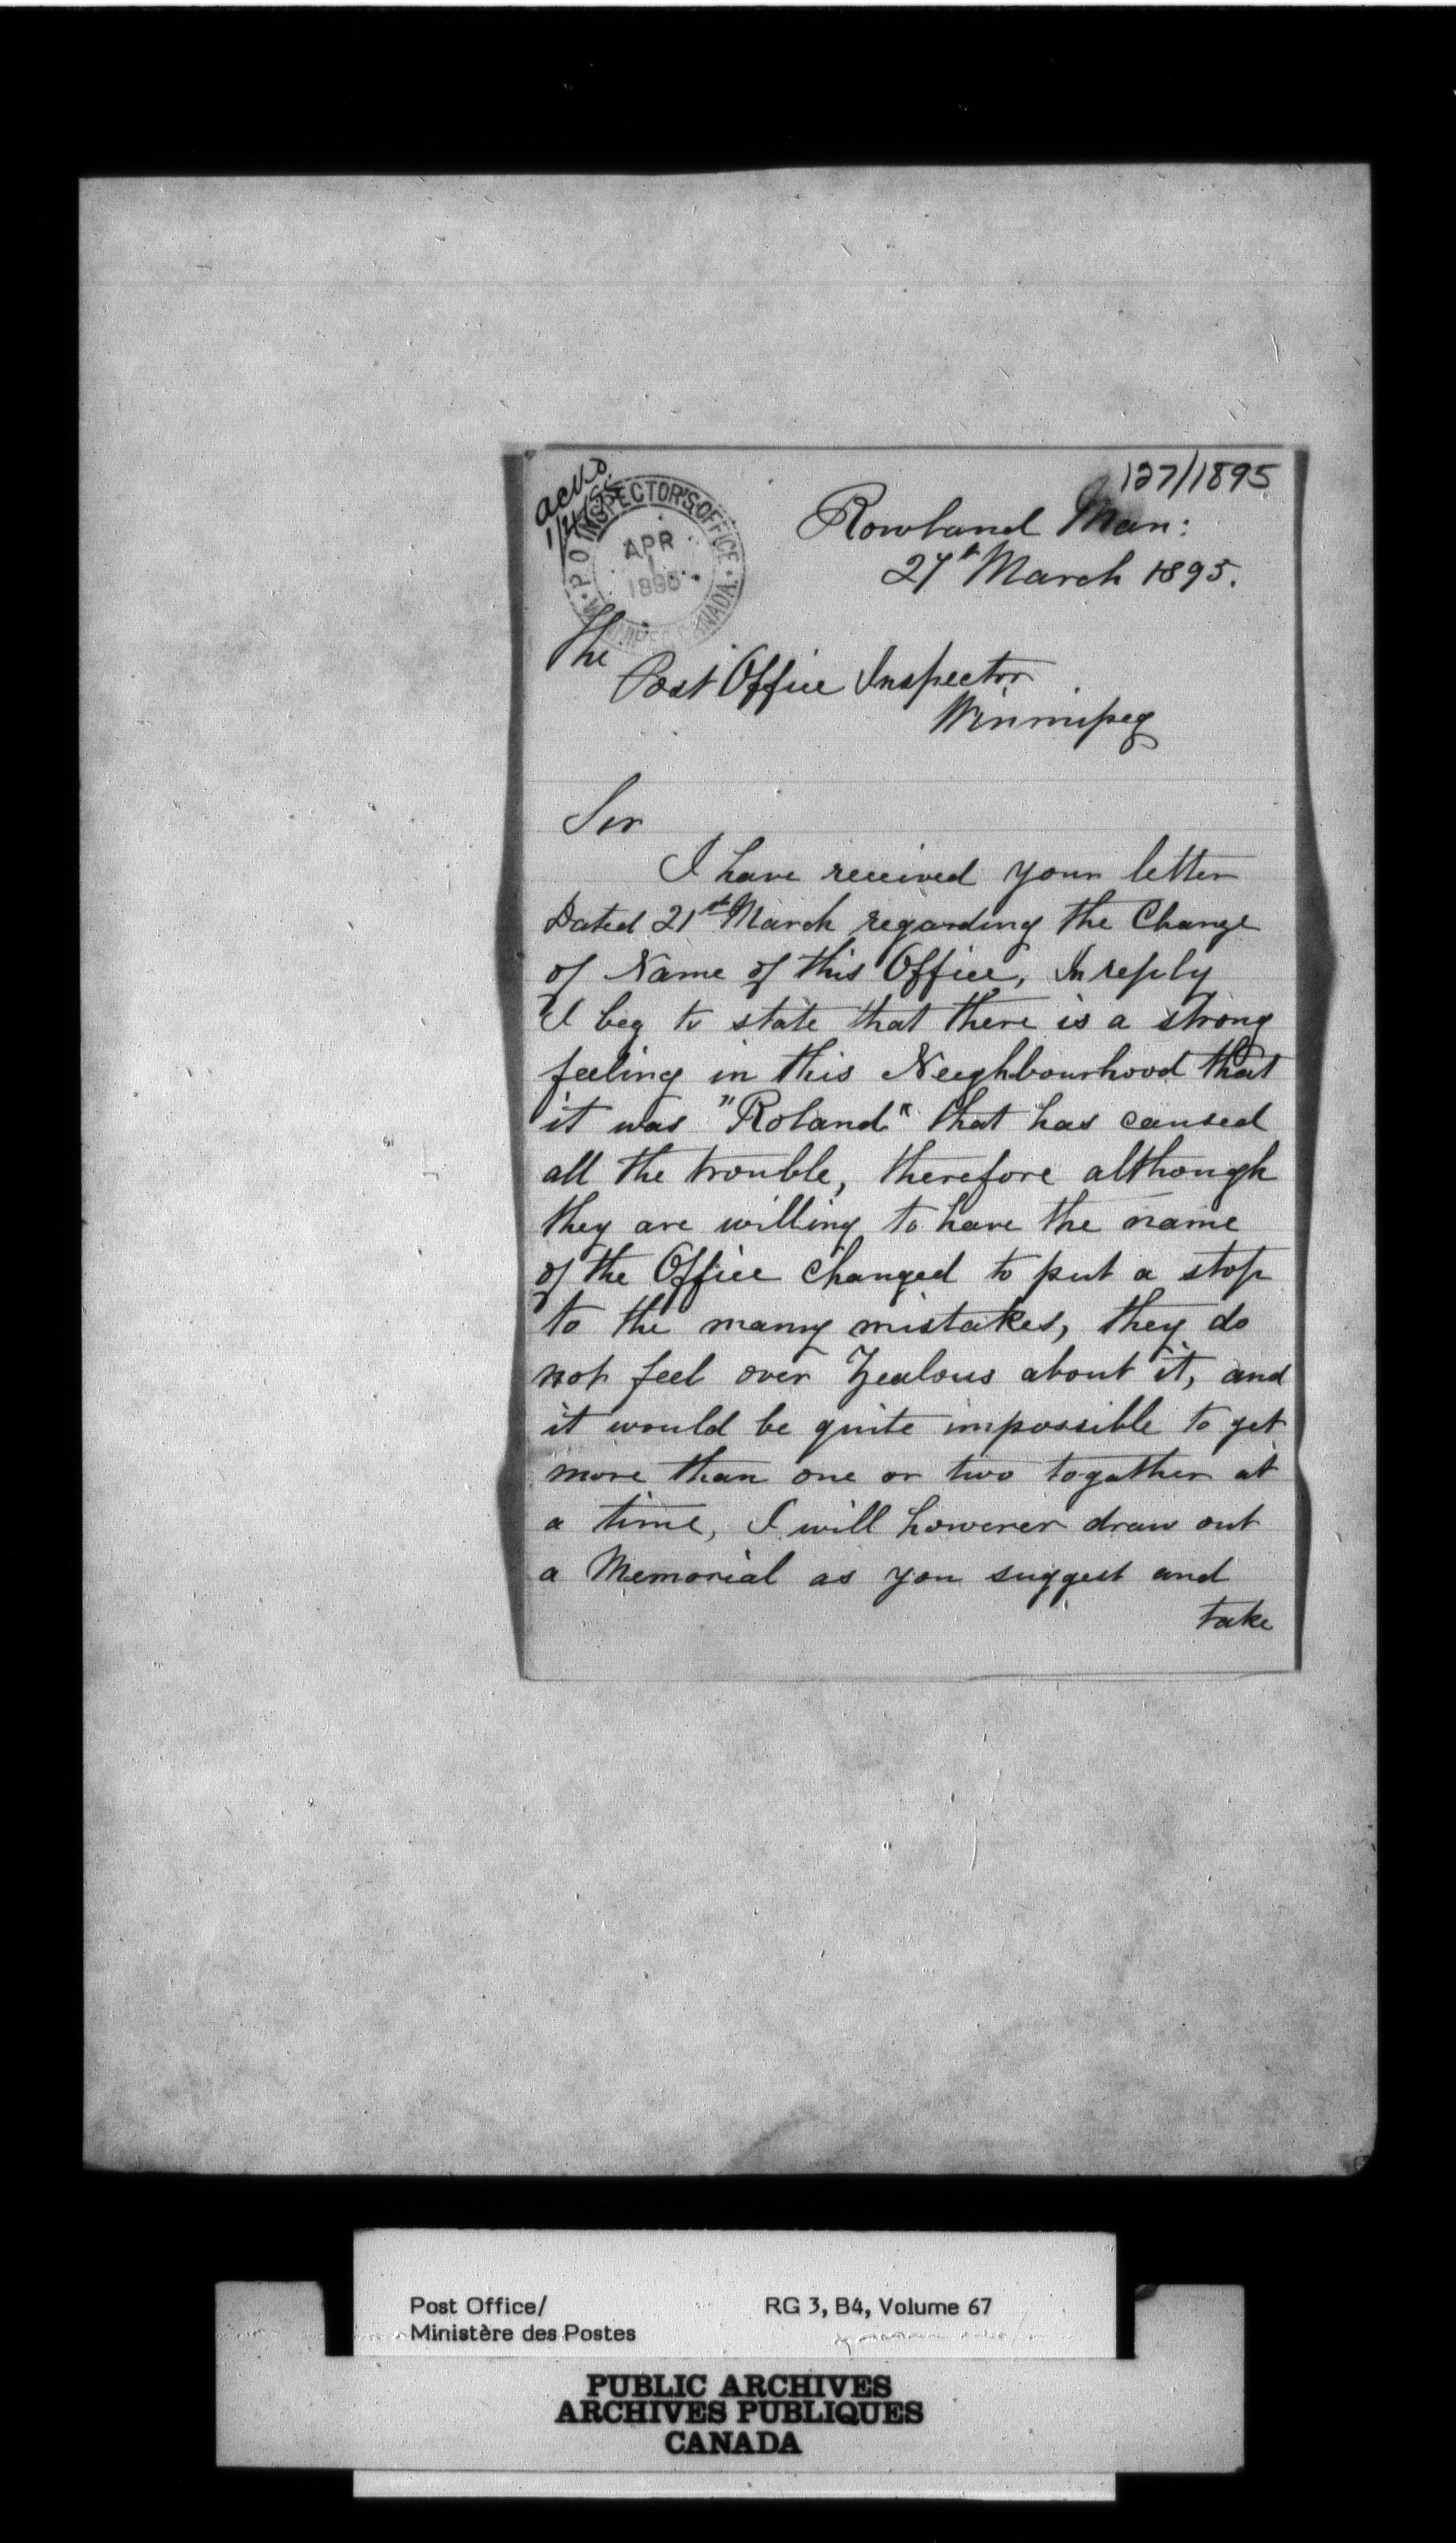 127/1895
ackd.
1/4/95
P.O. INSPECTOR'S OFFICE
APR
1
1895
WINNIPEG CANADA.
Rowland Man:
27th March 1895.
The
Post Office Inspector
Winnipeg
Sir
I have received your letter
Dated 21st March regarding the Change
of Name of this Office, In reply
I beg to state that there is a strong
feeling in this Neighbourhood that
it was "Roland" that has caused
all the trouble, therefore although
they are willing to have the name
of the Office changed to put a stop
to the many mistakes, they do
not feel over Zealous about it, and
it would be quite impossible to get
more than one or two togather at
a time, I will however draw out
a Memorial as you suggest and
take
Post Office/
Ministère des Postes
RG 3, B4, Volume 67
PUBLIC ARCHIVES
ARCHIVES PUBLIQUES
CANADA